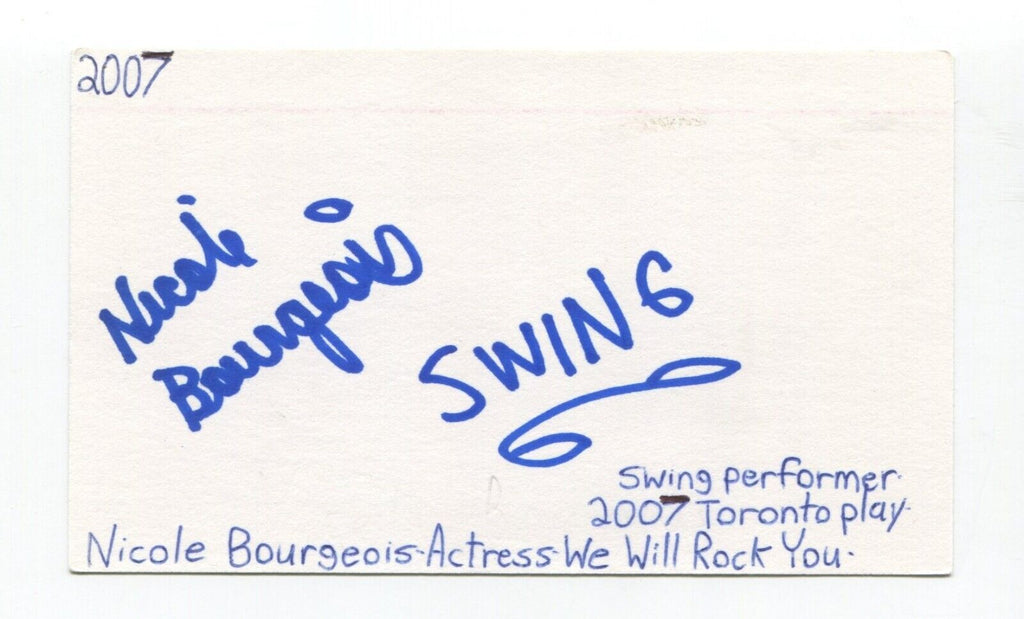 2007
Nicole
Bourgeois
SWING
Swing performer.
2007 Toronto play.
Nicole Bourgeois-Actress-We Will Rock You.